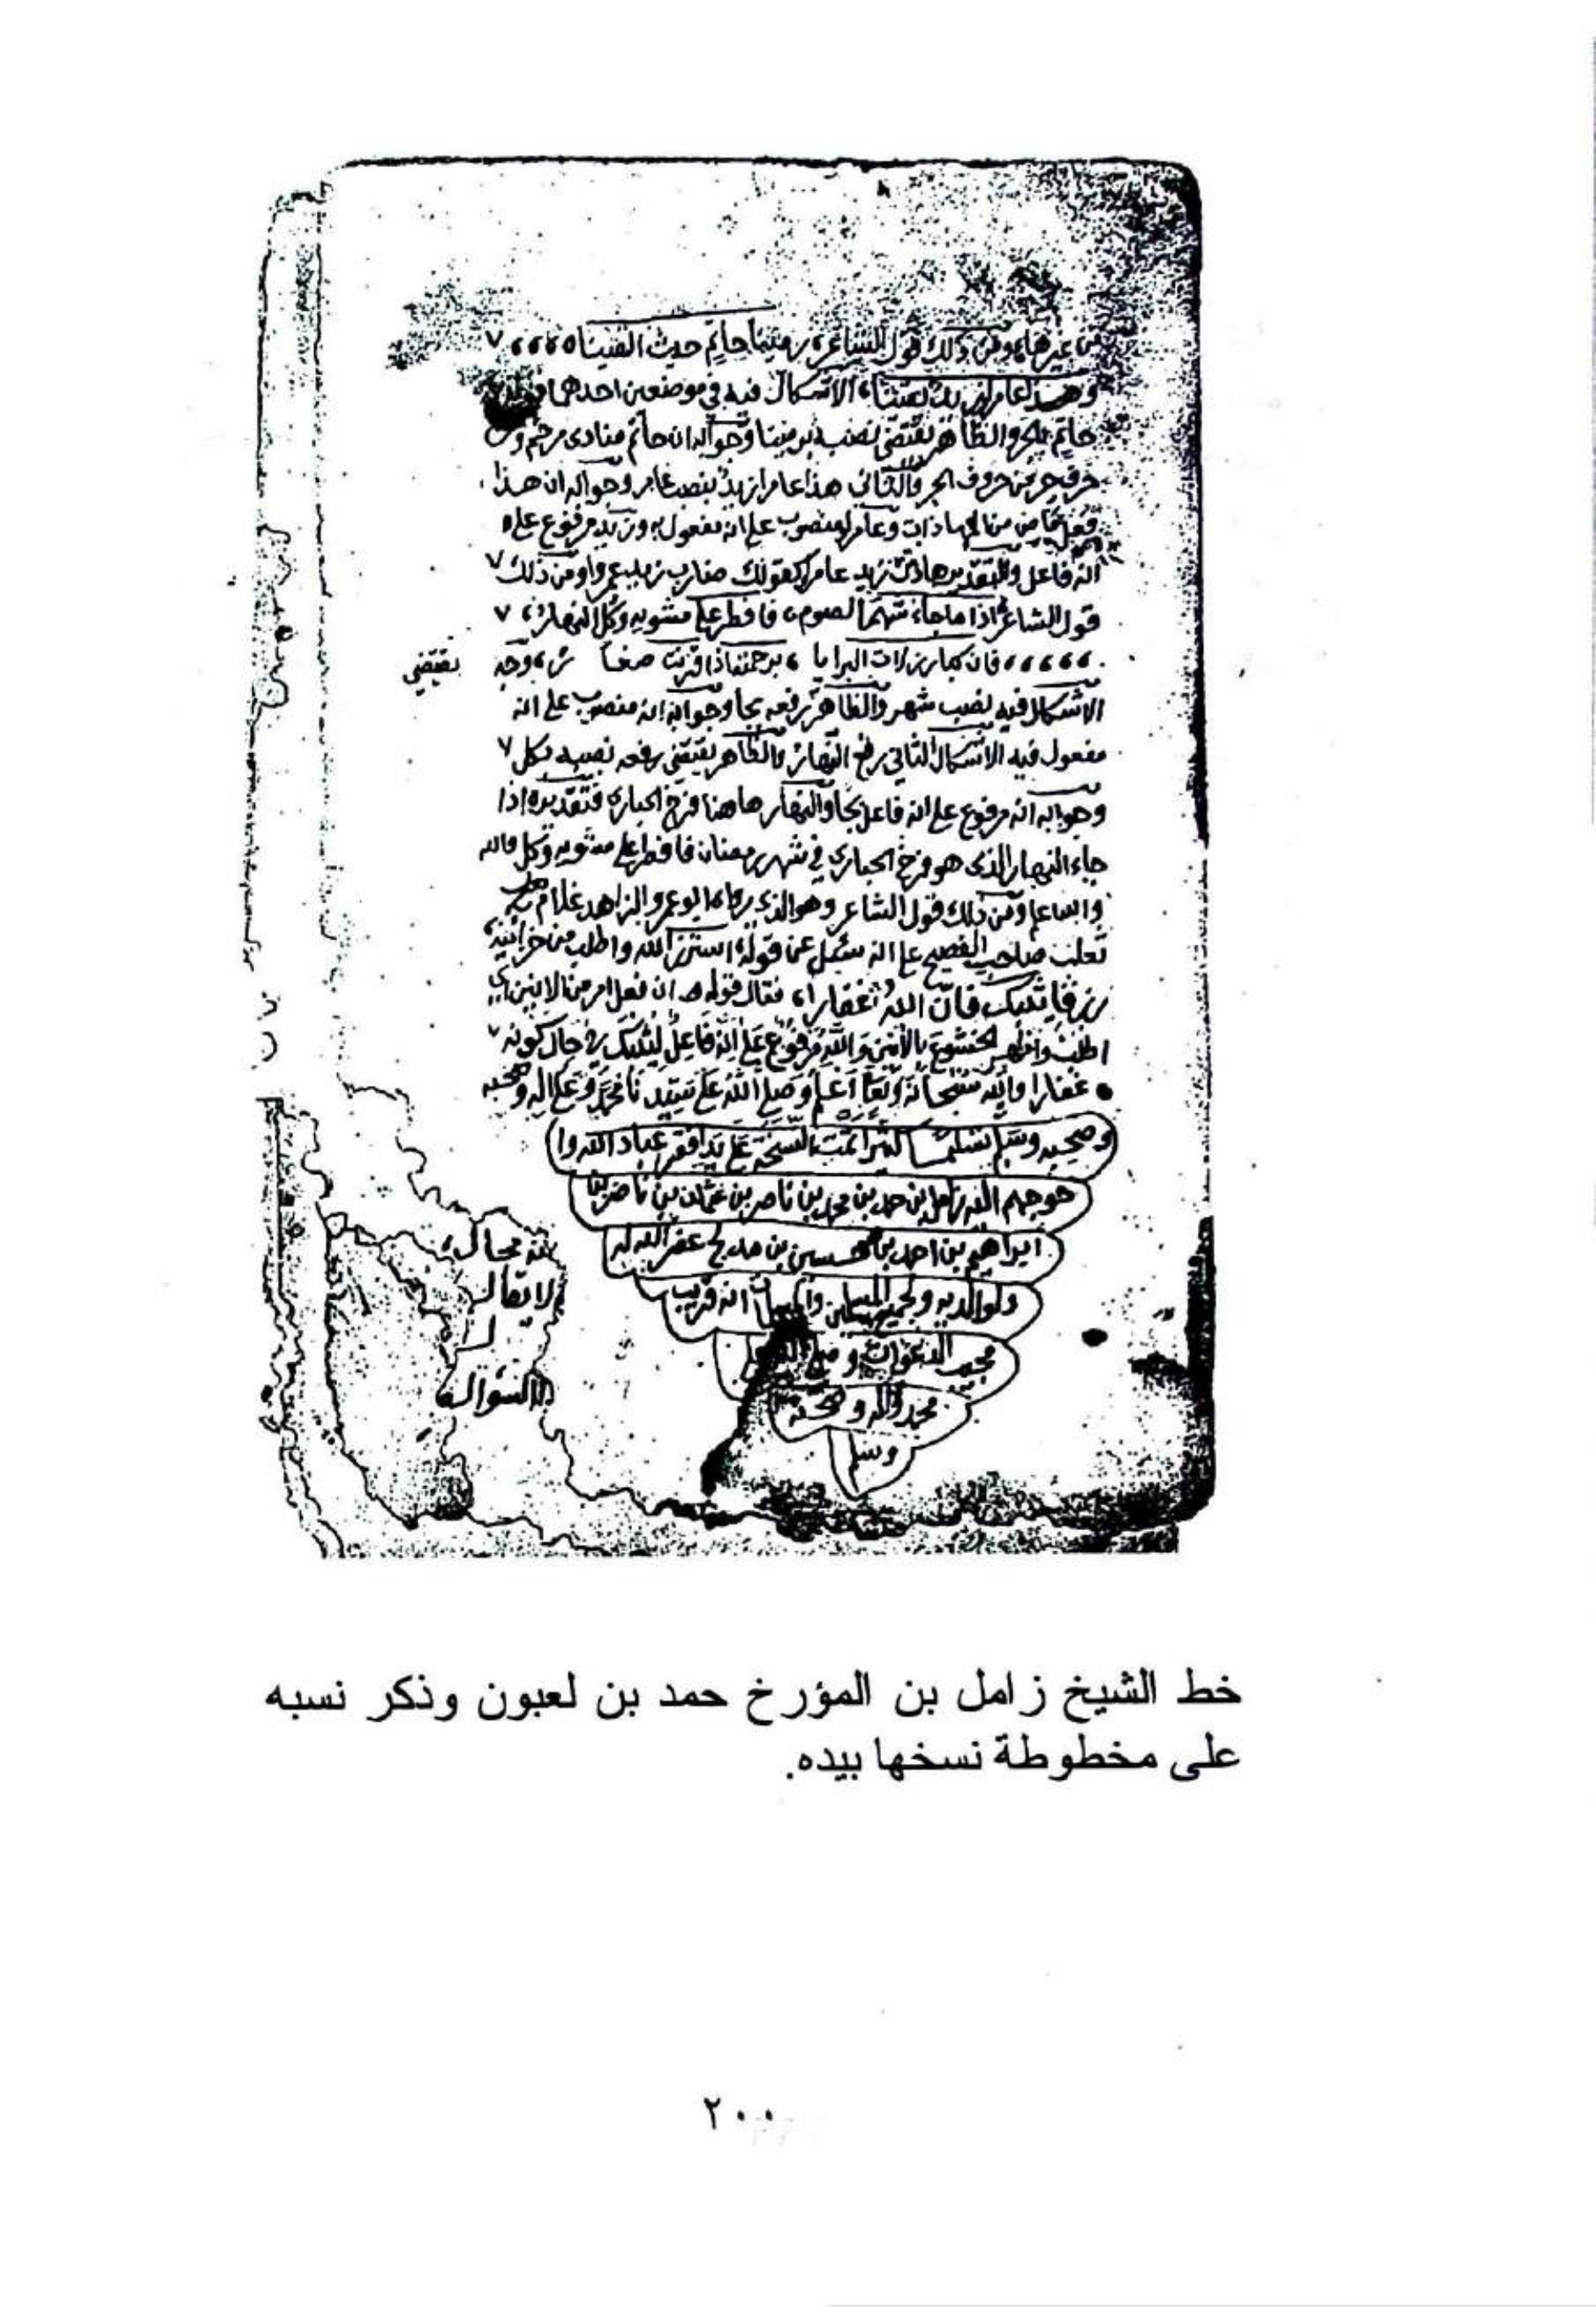 من غيرها ومن ذلك قول الشاعر رمينا حاتم حديث القينا
وهذا عامر زيد الاشكال فيه في موضعين احدهما
حاتم بالجر والظاهر يقتضي نصبه برمينا وجوابه ان حاتم منادى مرخم ومن
حرف جر من حروف الجر والثاني هذا عامرا زيد بنصب عامر وجوابه ان هذا
فعل ماض من المهاذاة وعامر منصوب على انه مفعول به وزيد مرفوع على
انه فاعل والتقدير هاذى زيد عامرا كقولك ضارب زيد عمروا ومن ذلك
قول الشاعر اذا ما جاء شهر الصوم فافطر على مشويه وكل النهار
فان كبار زلات البرايا برحمته اذا قرنت صغار وجه
يقتضي
الاشكال فيه نصب شهر والظاهر رفعه بجا وجوابه انه منصوب على انه
مفعول فيه الاشكال الثاني رفع النهار والظاهر يقتضي نصبه بكل
وجوابه انه مرفوع على انه فاعل بجا والنهار هاهنا فرخ الحبارى فتقديره اذا
جاء النهار الذي هو فرخ الحبارى في شهر رمضان فافطر على مشويه وكل والله
والله اعلم ومن ذلك قول الشاعر وهو الذي رواه ابو عمرو الزاهد غلام
ثعلب صاحب الفصيح على انه سئل عن قوله استرزق الله واطلب من خزائنه
رزقا يثبك فان الله غفارا فقال قوله ان فعل امر من الانين اي
اطلب واظهر الخشوع بالانين والله مرفوع على انه فاعل ليثبك في حال كونه
غفارا والله سبحانه وتعا اعلم وصلى الله على سيدنا محمد وعلى اله وصحبه
وصحبه وسلم تسليما كثيرا تمت النسخة على يد افقر عباد الله وا
حوجهم اليه زامل بن حمد بن محمد بن ناصر بن عثمان بن ناصر بن
ابراهيم بن احمد بن حسين بن مدلج عفر الله له
ولوالديه ولجميع المسلمين والمسلمات انه قريب
مجيب الدعوات وصلى الله على
محمد واله وصحبه
وسلم
محال
لا يقال
السؤال
خط الشيخ زامل بن المؤرخ حمد بن لعبون وذكر نسبه
على مخطوطة نسخها بيده.
٢٠٠